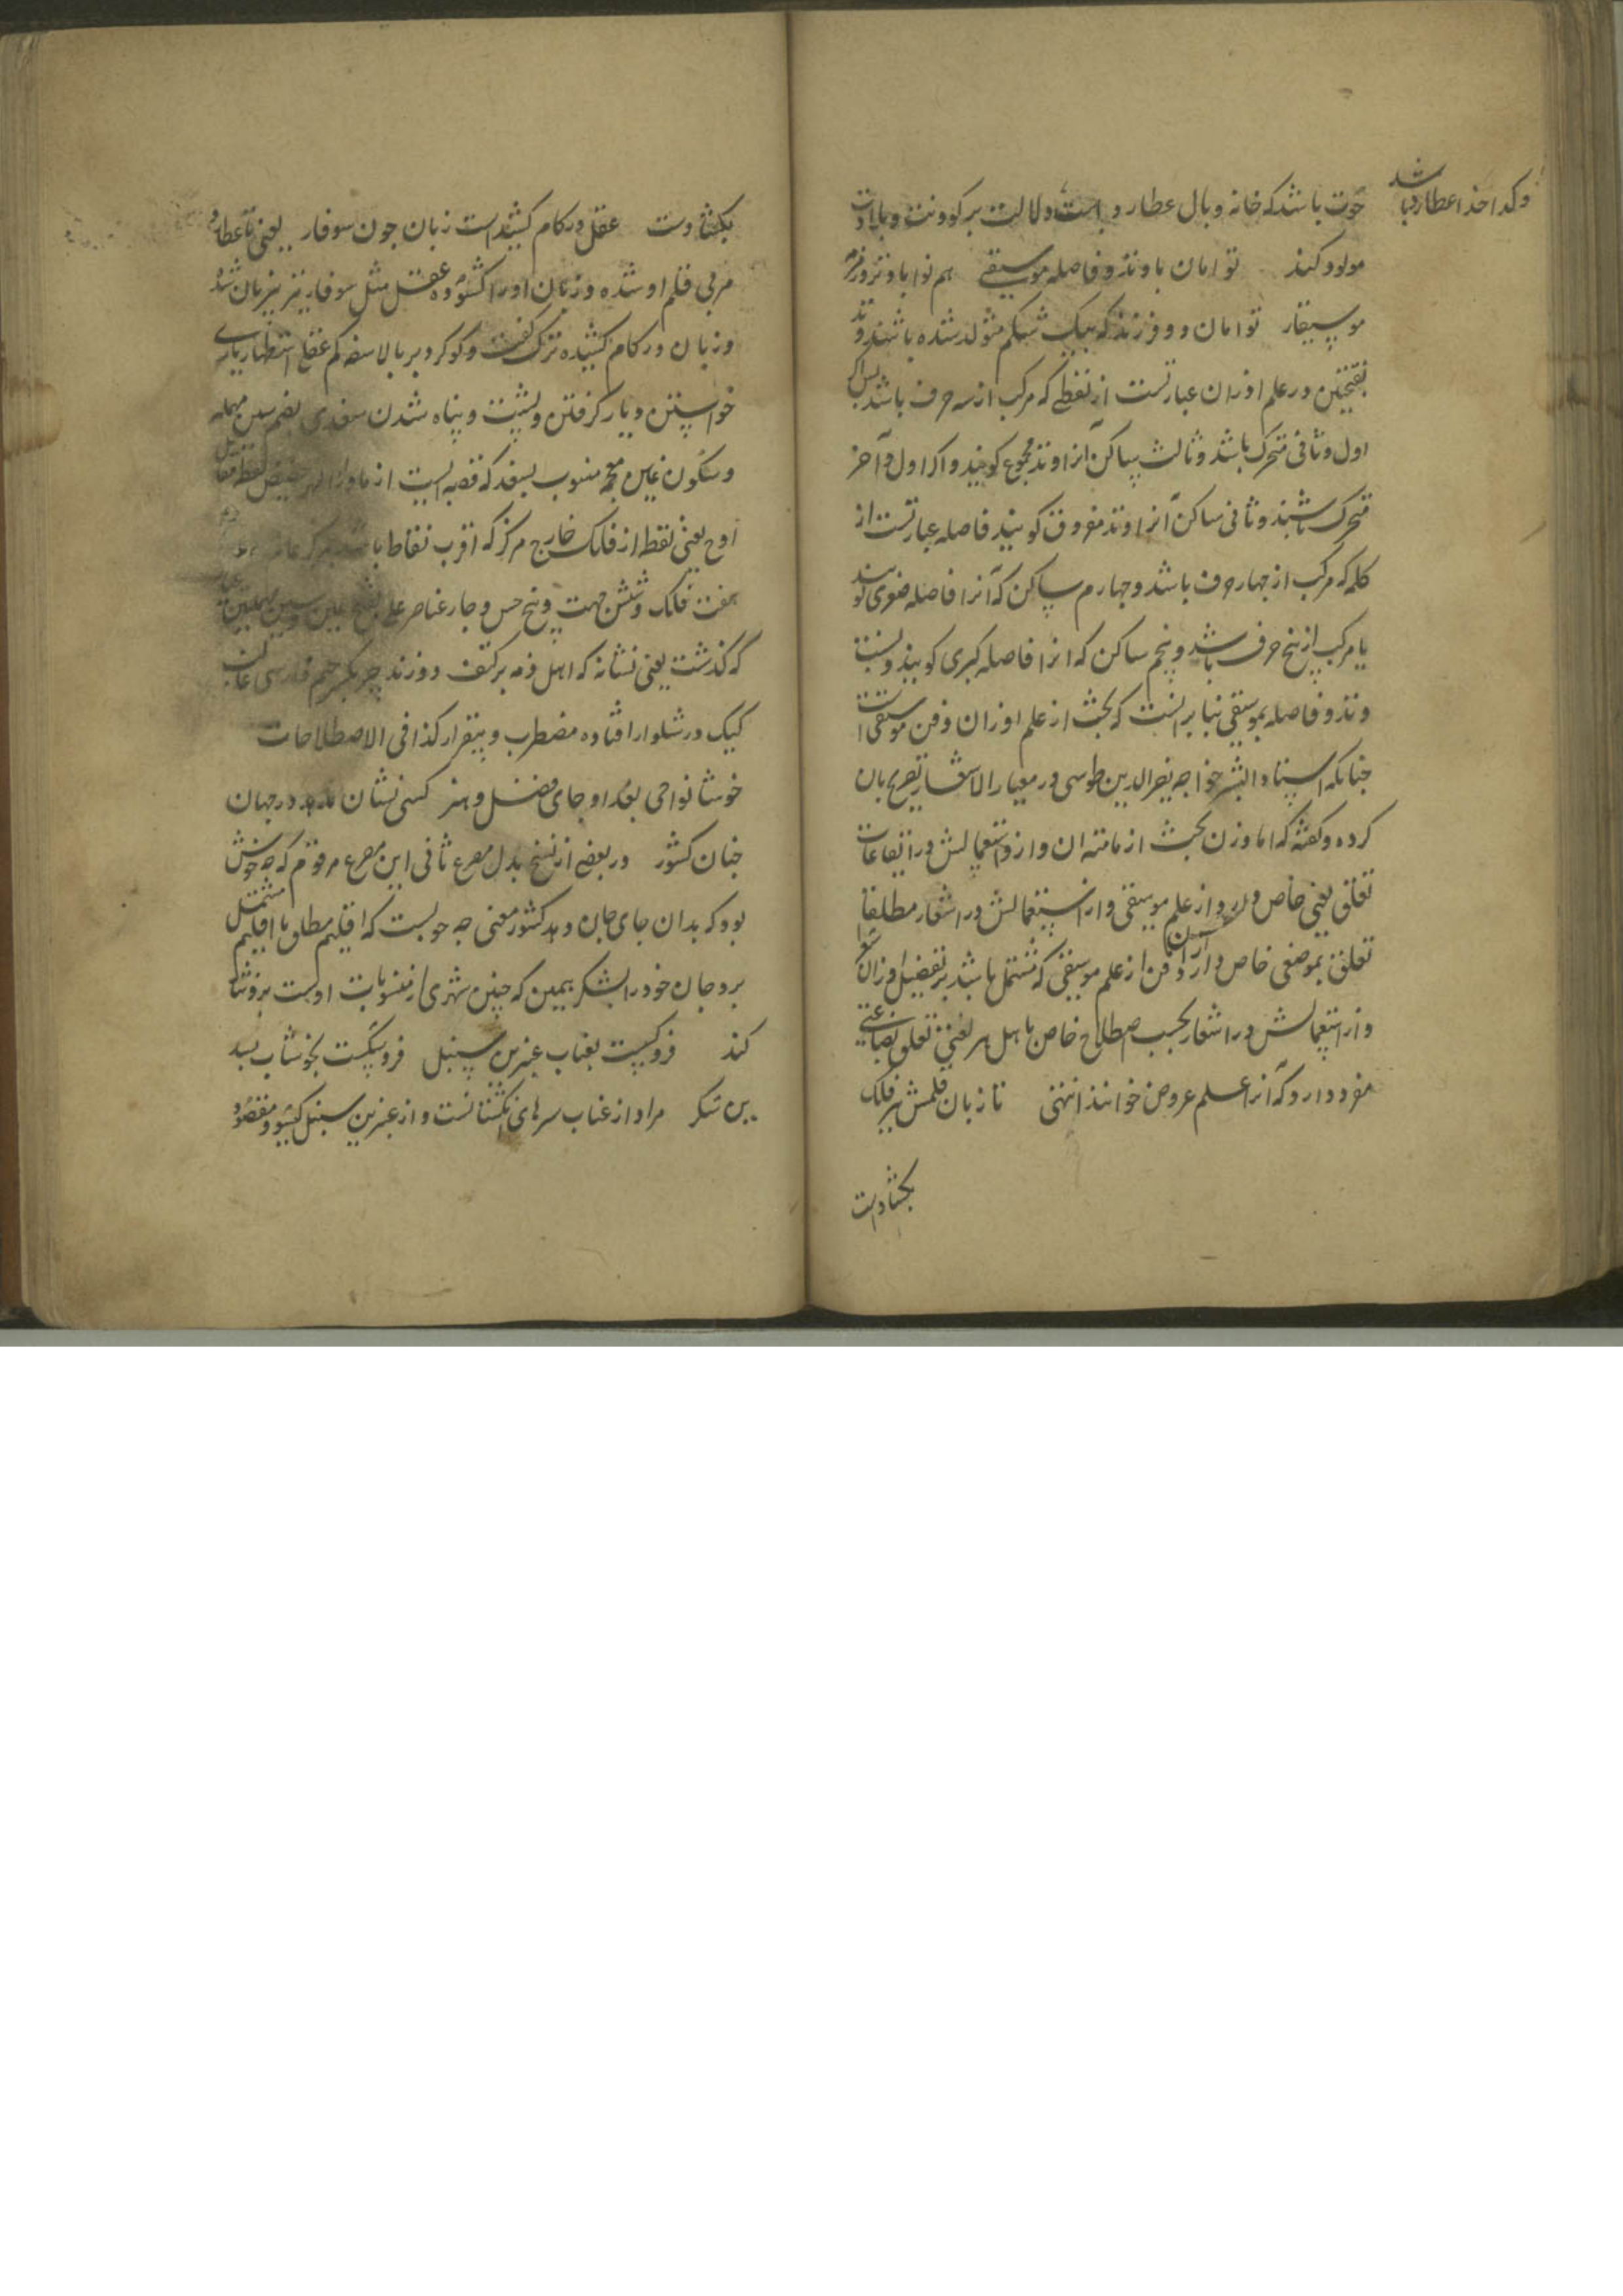 و کدخدا عطارد باشد
حوت باشد که خانه وبال عطارد است دلالت بر کودنت و بلادت
مولود کند توامان با وتد و فاصله موسیقی هم نوا با وتر و زخمه
موسیقار توامان دو فرزند که بیک شکم متولد شده باشند و وتد
بفتحتین در علم اوزان عبارتست از لفظی که مرکب از سه حرف باشد پس اگر
اول و ثانی متحرک باشد و ثالث ساکن آنرا وتد مجموع گویند و اگر اول و آخر
متحرک باشند و ثانی ساکن آنرا وتد مفروق گویند فاصله عبارتست از
کلمه که مرکب از چهار حرف باشد و چهارم ساکن که آنرا فاصله صغری گویند
یا مرکب از پنج حرف باشد و پنجم ساکن که انرا فاصله کبری گویند و نسبت
وتد و فاصله بموسیقی بنا بر انست که بحث از علم اوزان و فن موسیقی است
چنانکه استاد البشر خواجه نصیر الدین طوسی در معیار الاشعار تصریح بان
کرده و گفته که اما وزن بحث از مائیت ان و از استعمالش در ایقاعات
تعلق بفنی خاص دارد از علم موسیقی و از استعمالش در اشعار مطلقا
تعلق بموضعی خاص دارد از ان فن از علم موسیقی که مشتمل باشد بر تفضیل اوزان شعرا
و از استعمالش در اشعار بحسب اصطلاح خاص باهل هر لغتی تعلق بصناعتی
مفرد دارد که آنرا علم عروض خوانند انتهی تا زبان قلمش تیر فلک
بگشادست
بگشادست عقل در کام کشیداست زبان چون سوفار یعنی تا عطارد
مربی قلم او شده و زبان اورا گشوده عقل مثل سوفار تیر بیزبان شده
و زبان در کام کشیده ترک گفت و گو کرد بر بالا سفدیم عقل استظهار یاری
خواستن و یار گرفتن و پشت و پناه شدن سغدی بضم سین مهمله
و سکون غین معجمه منسوب بسغد که قصبه ایست از ماوراء النهر حضیض نقطه مقابل
اوج یعنی نقطه از فلک خارج مرکز که اقرب نقاط باشد بمرکز عالم
هفت فلک و شش جهت و پنج حس و چار عناصر عسلی بفتح عین و سین مهملتین
که گذشت یعنی نشانه که اهل ذمه بر کتف دوزند بکسر جیم فارسی
کیک در شلوار افتاده مضطرب و بیقرار کذا فی الاصطلاحات
خوشا نواحی بغداد جای فضل و هنر کسی نشان ندهد در جهان
چنان کشور و در بعضی از نسخ بدل مصرع ثانی این مصرع مرقوم که چه خوش
بود که بدان جای جان دهد کشور معنی چه خوبست که اقلیم مطلق یا اقلیم مشتمل
برو جان خود را بشکر همین که چنین شهری از منسوبات اوست برو نثار
کند فرو گسیخت بعناب عنبرین سنبل فرو شکست بخوشاب بسد
بن شکر مراد از عناب سرهای انگشتانست و از عنبرین سنبل گیسو و مقصود